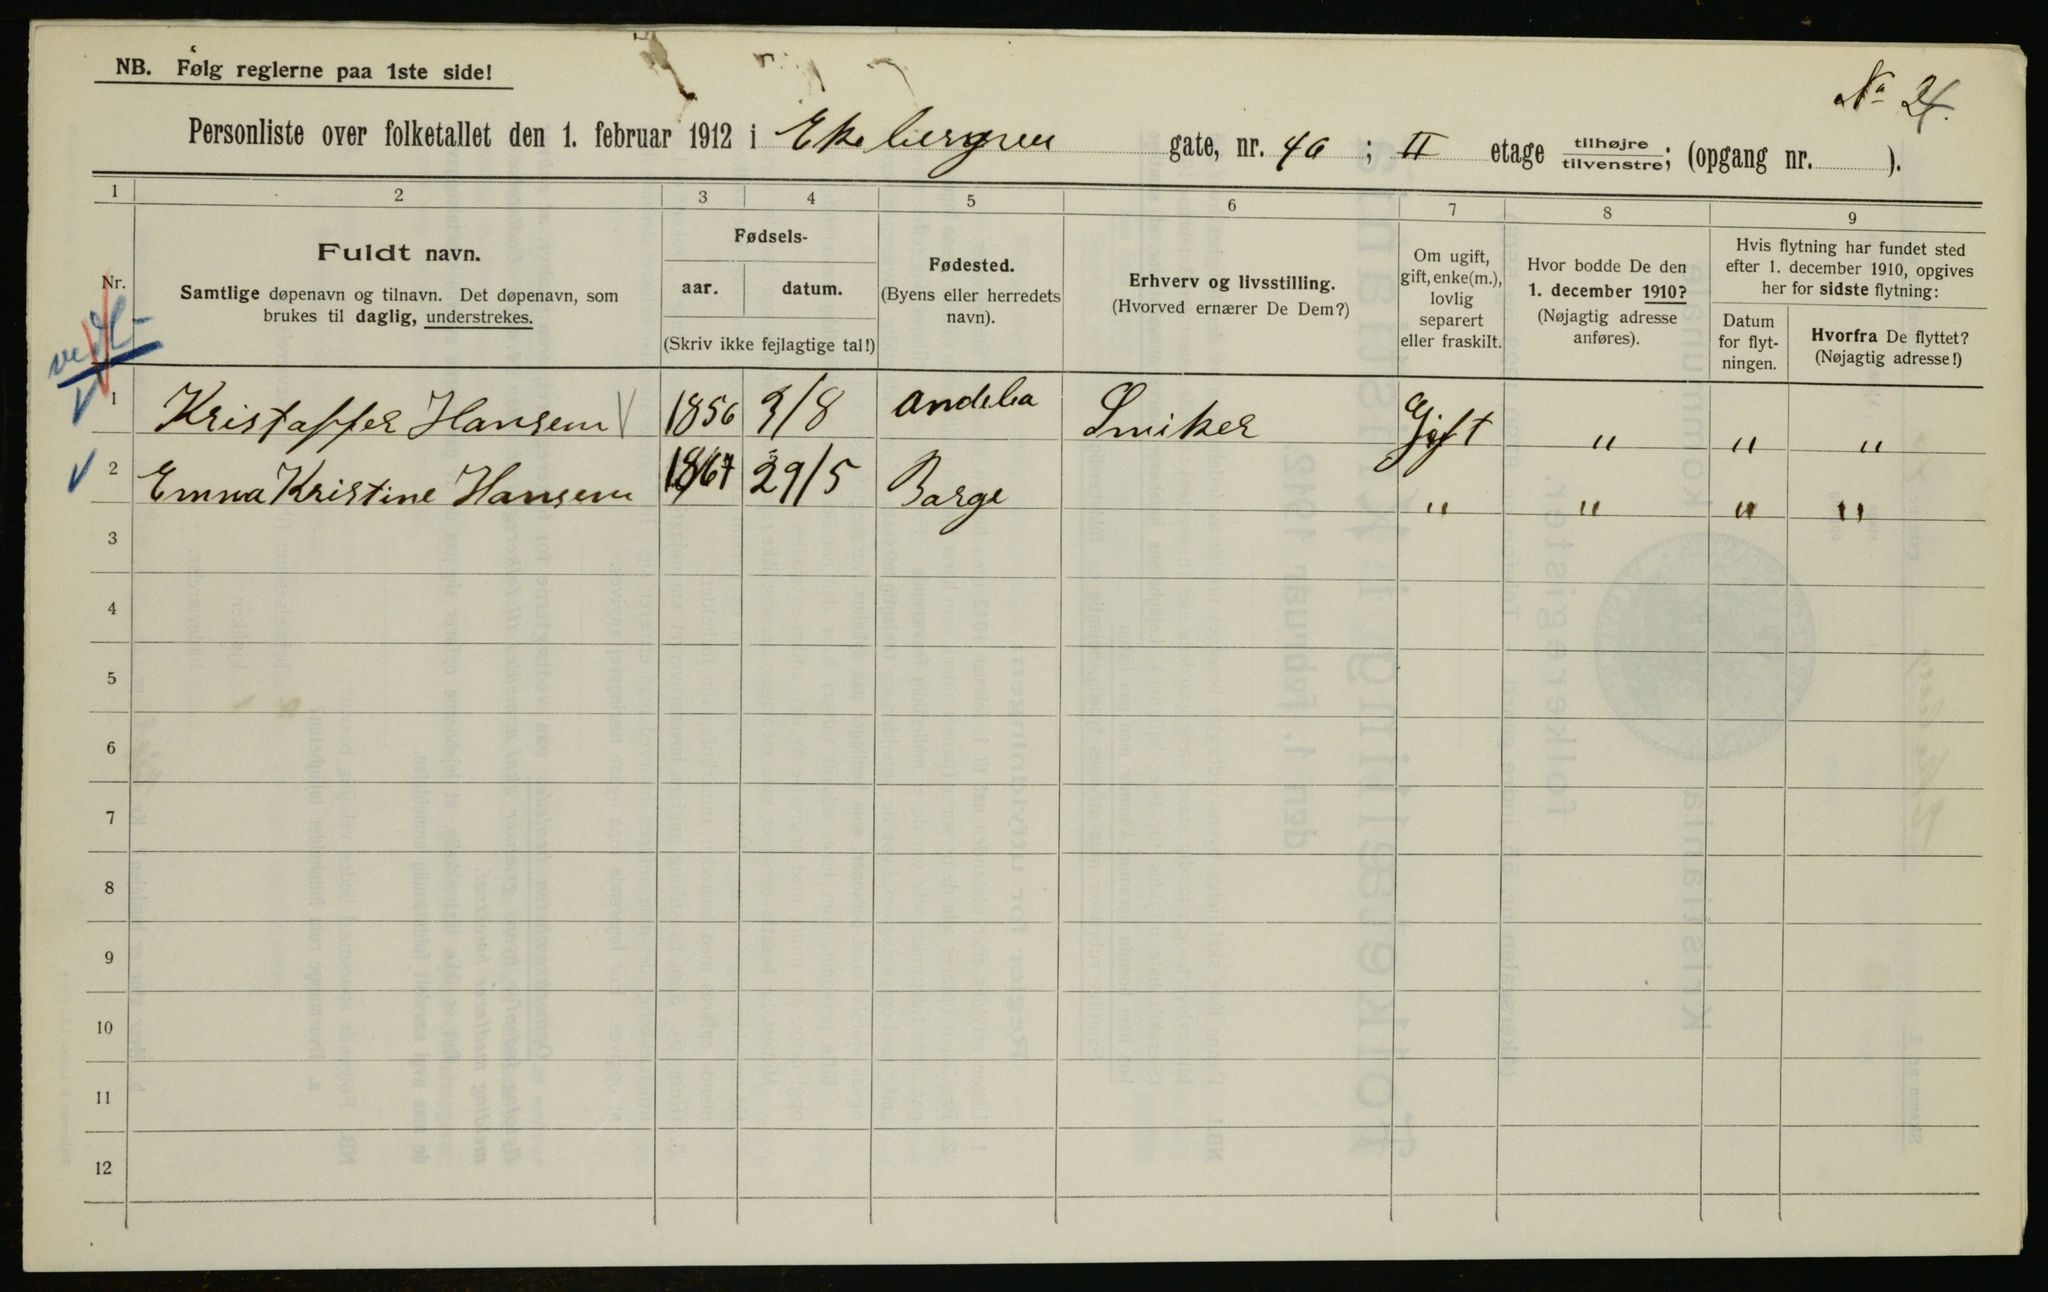 NB. Følg reglerne paa 1ste side!
No 24.
Personliste over folketallet den 1. februar 1912 i Ekebergveien gate, nr. 40 ; II etage tilhøjre tilvenstre; (opgang nr. ).
1 2 3 4 5 6 7 8 9
Nr.
Fuldt navn.
Samtlige døpenavn og tilnavn. Det døpenavn, som
brukes til daglig, understrekes.
Fødsels-
aar. datum.
(Skriv ikke fejlagtige tal!)
Fødested.
(Byens eller herredets
navn).
Erhverv og livsstilling.
(Hvorved ernærer De Dem?)
Om ugift,
gift, enke(m.),
lovlig
separert
eller fraskilt.
Hvor bodde De den
1. december 1910?
(Nøjagtig adresse
anføres).
Hvis flytning har fundet sted
efter 1. december 1910, opgives
her for sidste flytning:
Datum
for flyt-
ningen.
Hvorfra De flyttet?
(Nøjagtig adresse!)
1 Kristaffer Hansen 1856 3/8 Andebu Smiker Gift " " "
2 Emma Kristine Hansen 1867 29/5 Borge " " " "
3
4
5
6
7
8
9
10
11
12